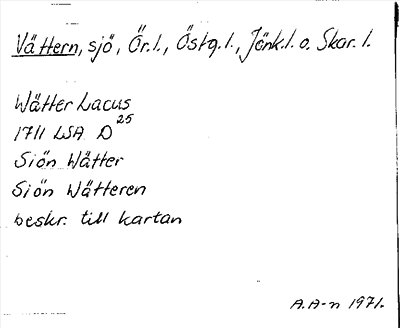 Vättern, sjö, Ör.l., Östg.l., Jönk.l. o. Skar. l.
Wätter Lacus
1711 LSA D 25
Siön Wätter
Siön Wätteren
beskr. till kartan
A.A-n 1971.